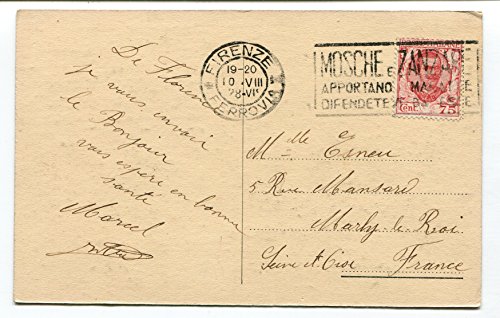 De Florence
je vous envoie
le Bonjour
vous espère en bonne
santé
Marcel
FIRENZE
19-20
10 VIII
28-VI
FERROVIA
MOSCHE E ZANZARE
APPORTANO MALATTIE
DIFENDETEVENE
Cent. 75
Mlle
5 Rue Mansard
Marly-le-Roi
Seine et Oise
France